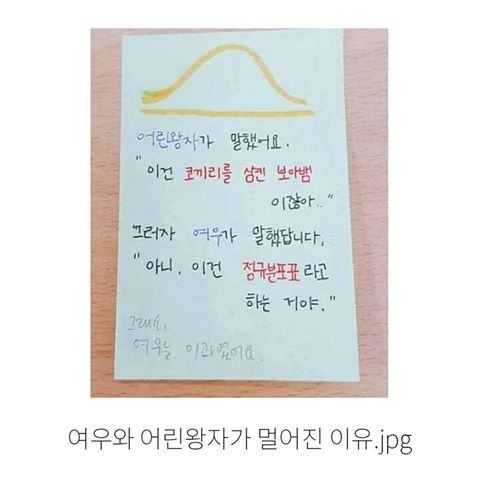 어린왕자가 말했어요.
"이건 코끼리를 삼킨 보아뱀
이잖아.."
그러자 여우가 말했답니다.
"아니, 이건 정규분포표라고
하는 거야."
그래요,
여우는 이과였어요.
여우와 어린왕자가 멀어진 이유.jpg